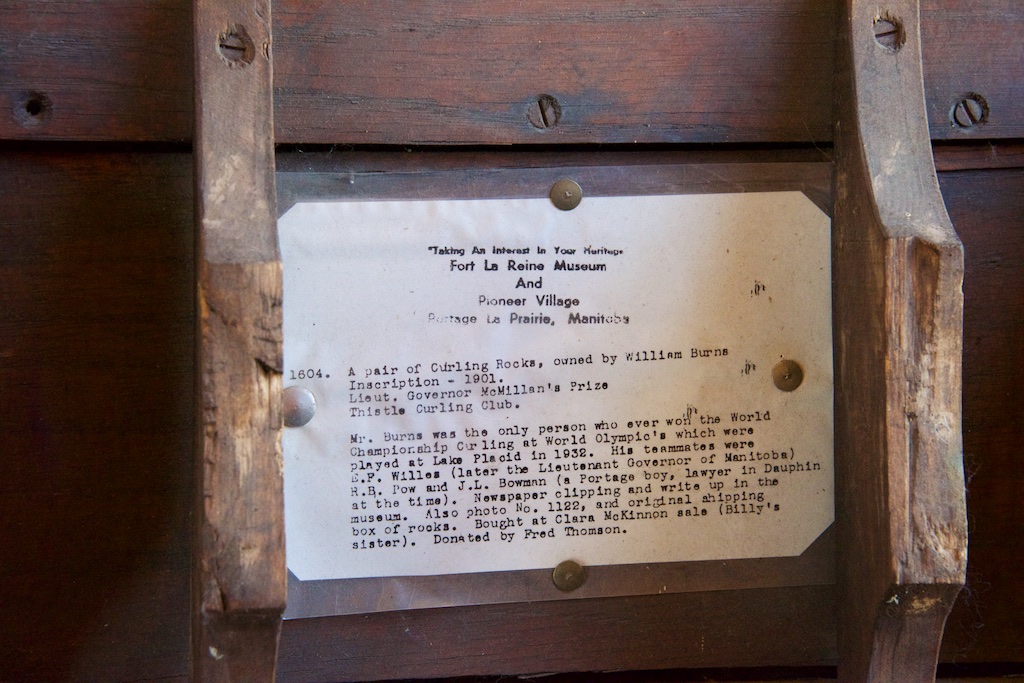 "Taking An Interest In Your Heritage
Fort La Reine Museum
And
Pioneer Village
Portage La Prairie, Manitoba
1604. A pair of Curling Rocks, owned by William Burns
Inscription - 1901.
Lieut. Governor McMillan's Prize
Thistle Curling Club.
Mr. Burns was the only person who ever won the World
Championship Curling at World Olympic's which were
played at Lake Placid in 1932. His teammates were
E.F. Willes (later the Lieutenant Governor of Manitoba)
R.B. Pow and J.L. Bowman (a Portage boy, lawyer in Dauphin
at the time). Newspaper clipping and write up in the
museum. Also photo No. 1122, and original shipping
box of rocks. Bought at Clara McKinnon sale (Billy's
sister). Donated by Fred Thomson.